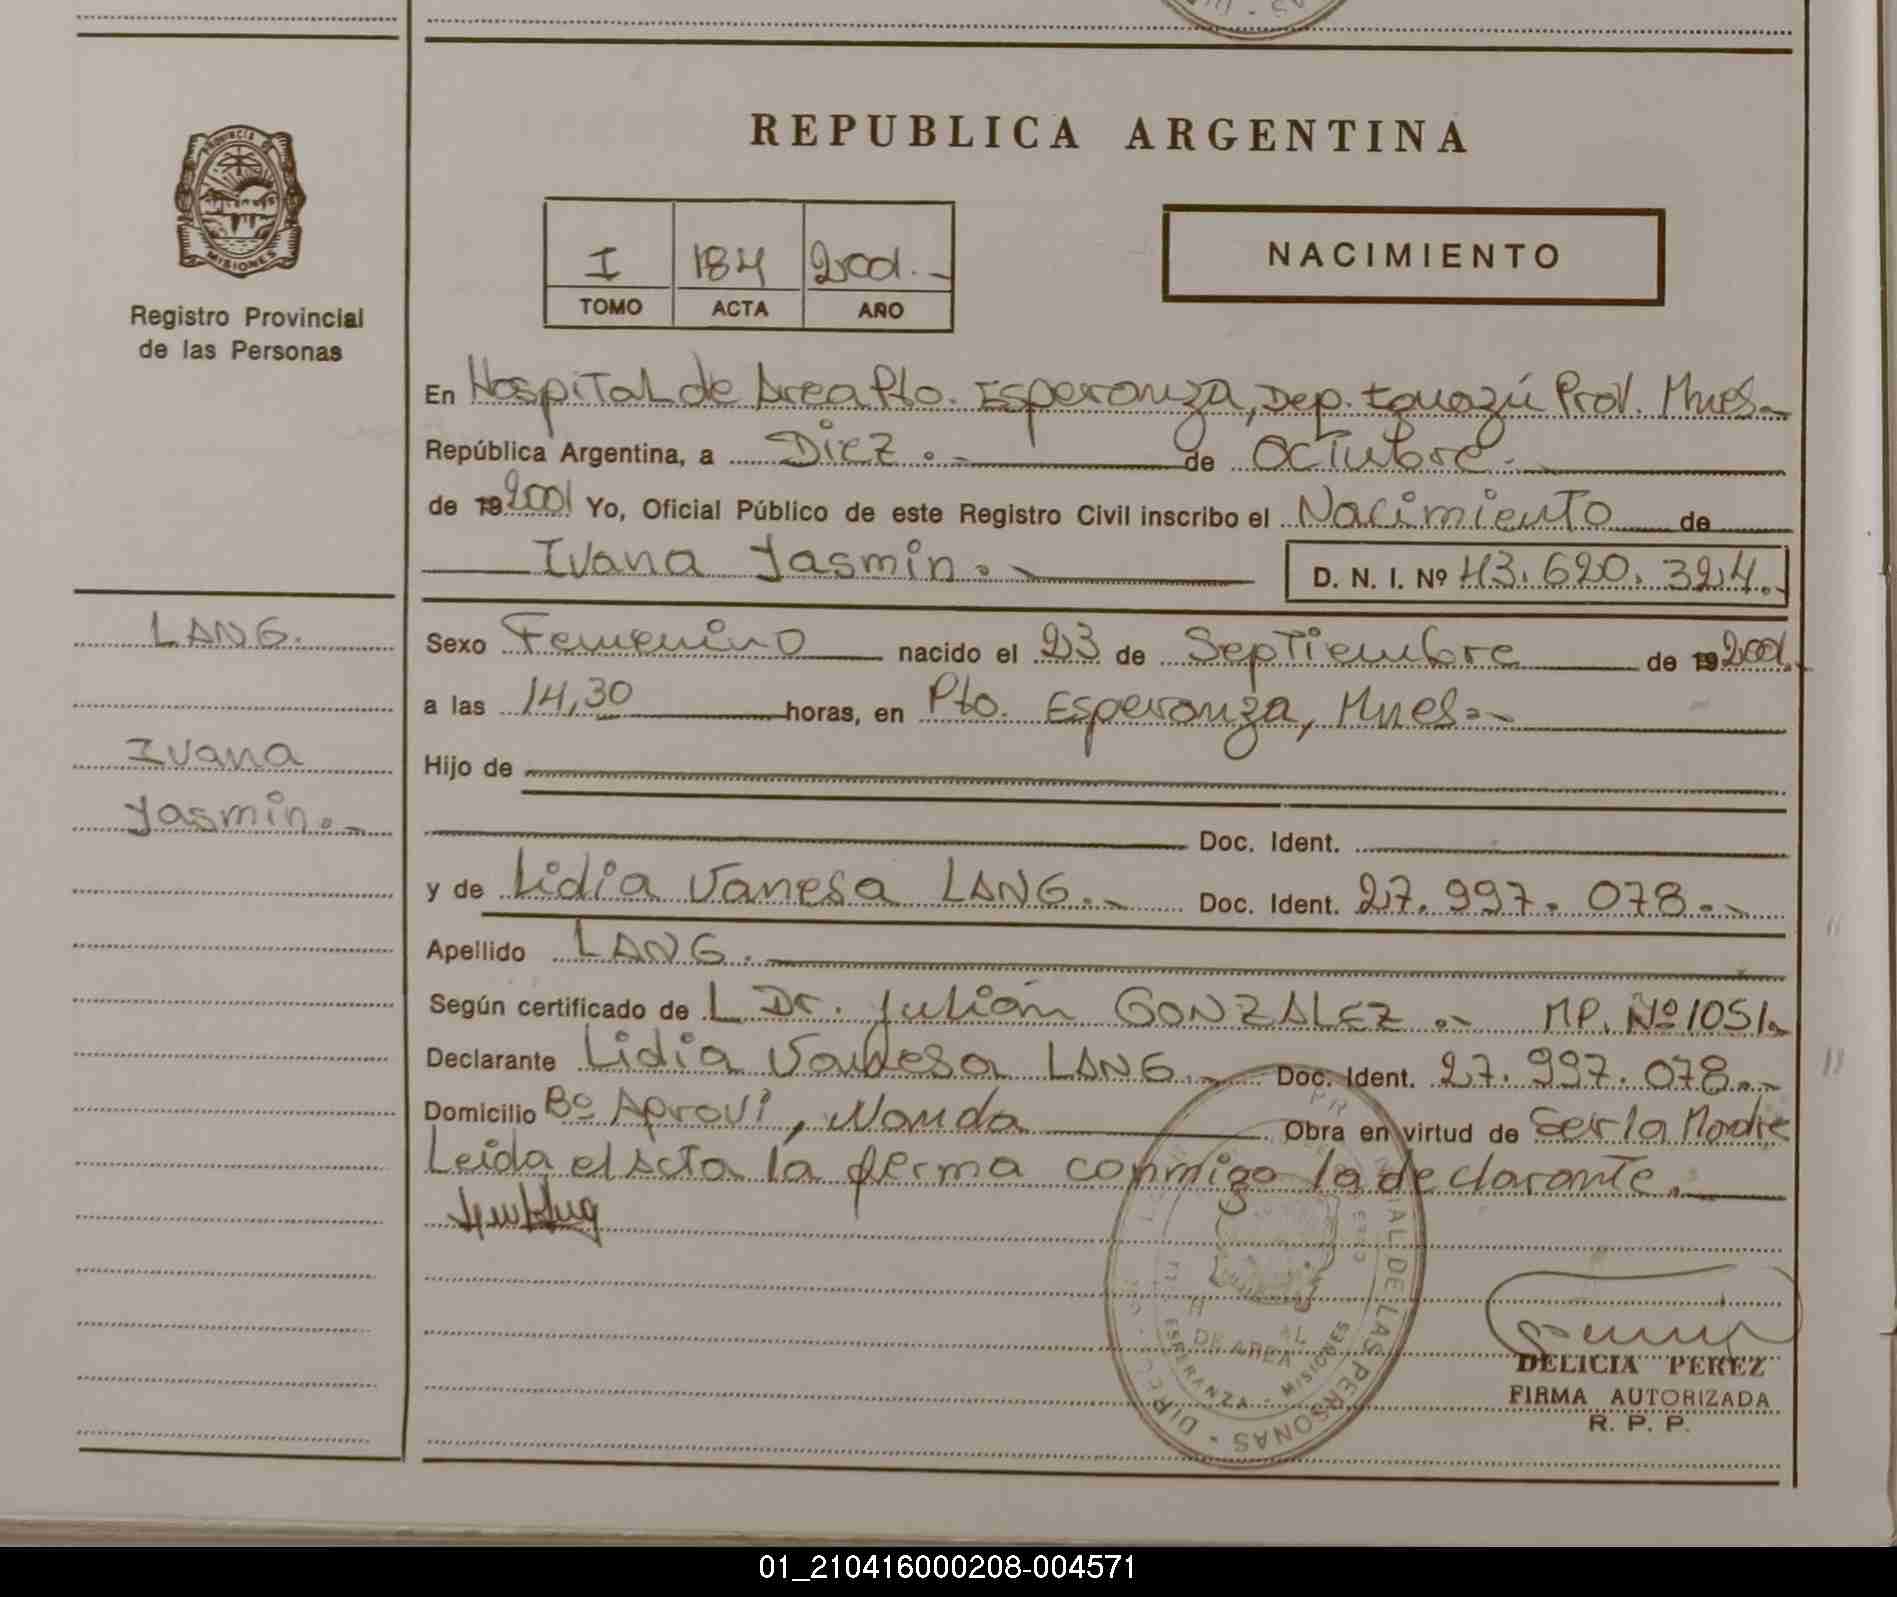 REPUBLICA ARGENTINA
PROVINCIA DE
MISIONES
Registro Provincial
de las Personas
I 184 2001.-
TOMO ACTA AÑO
NACIMIENTO
En Hospital de Area Pto. Esperanza, Dep. Iguazú Prov. Mnes.-
República Argentina, a Diez.- de Octubre.-
de 19 2001 Yo, Oficial Público de este Registro Civil inscribo el Nacimiento de
Ivana Yasmin.- D. N. I. Nº 43.620.324.-
LANG.
Ivana
Yasmin.-
Sexo Femenino nacido el 23 de Septiembre de 19 2001.-
a las 14,30 horas, en Pto. Esperanza, Mnes.-
Hijo de
Doc. Ident.
y de Lidia Vanesa LANG.- Doc. Ident. 27.997.078.-
Apellido LANG.
Según certificado de L Dr. Julián GONZALEZ.- MP. Nº 1051.-
Declarante Lidia Vanesa LANG.- Doc. Ident. 27.997.078.-
Domicilio Bº Aprovi, Wanda Obra en virtud de Ser la Madre
Leida el Acta la firma conmigo la declarante.
DE AREA
ESPERANZA - MISIONES
DE LAS PERSONAS
DELICIA PEREZ
FIRMA AUTORIZADA
R. P. P.
01_210416000208-004571